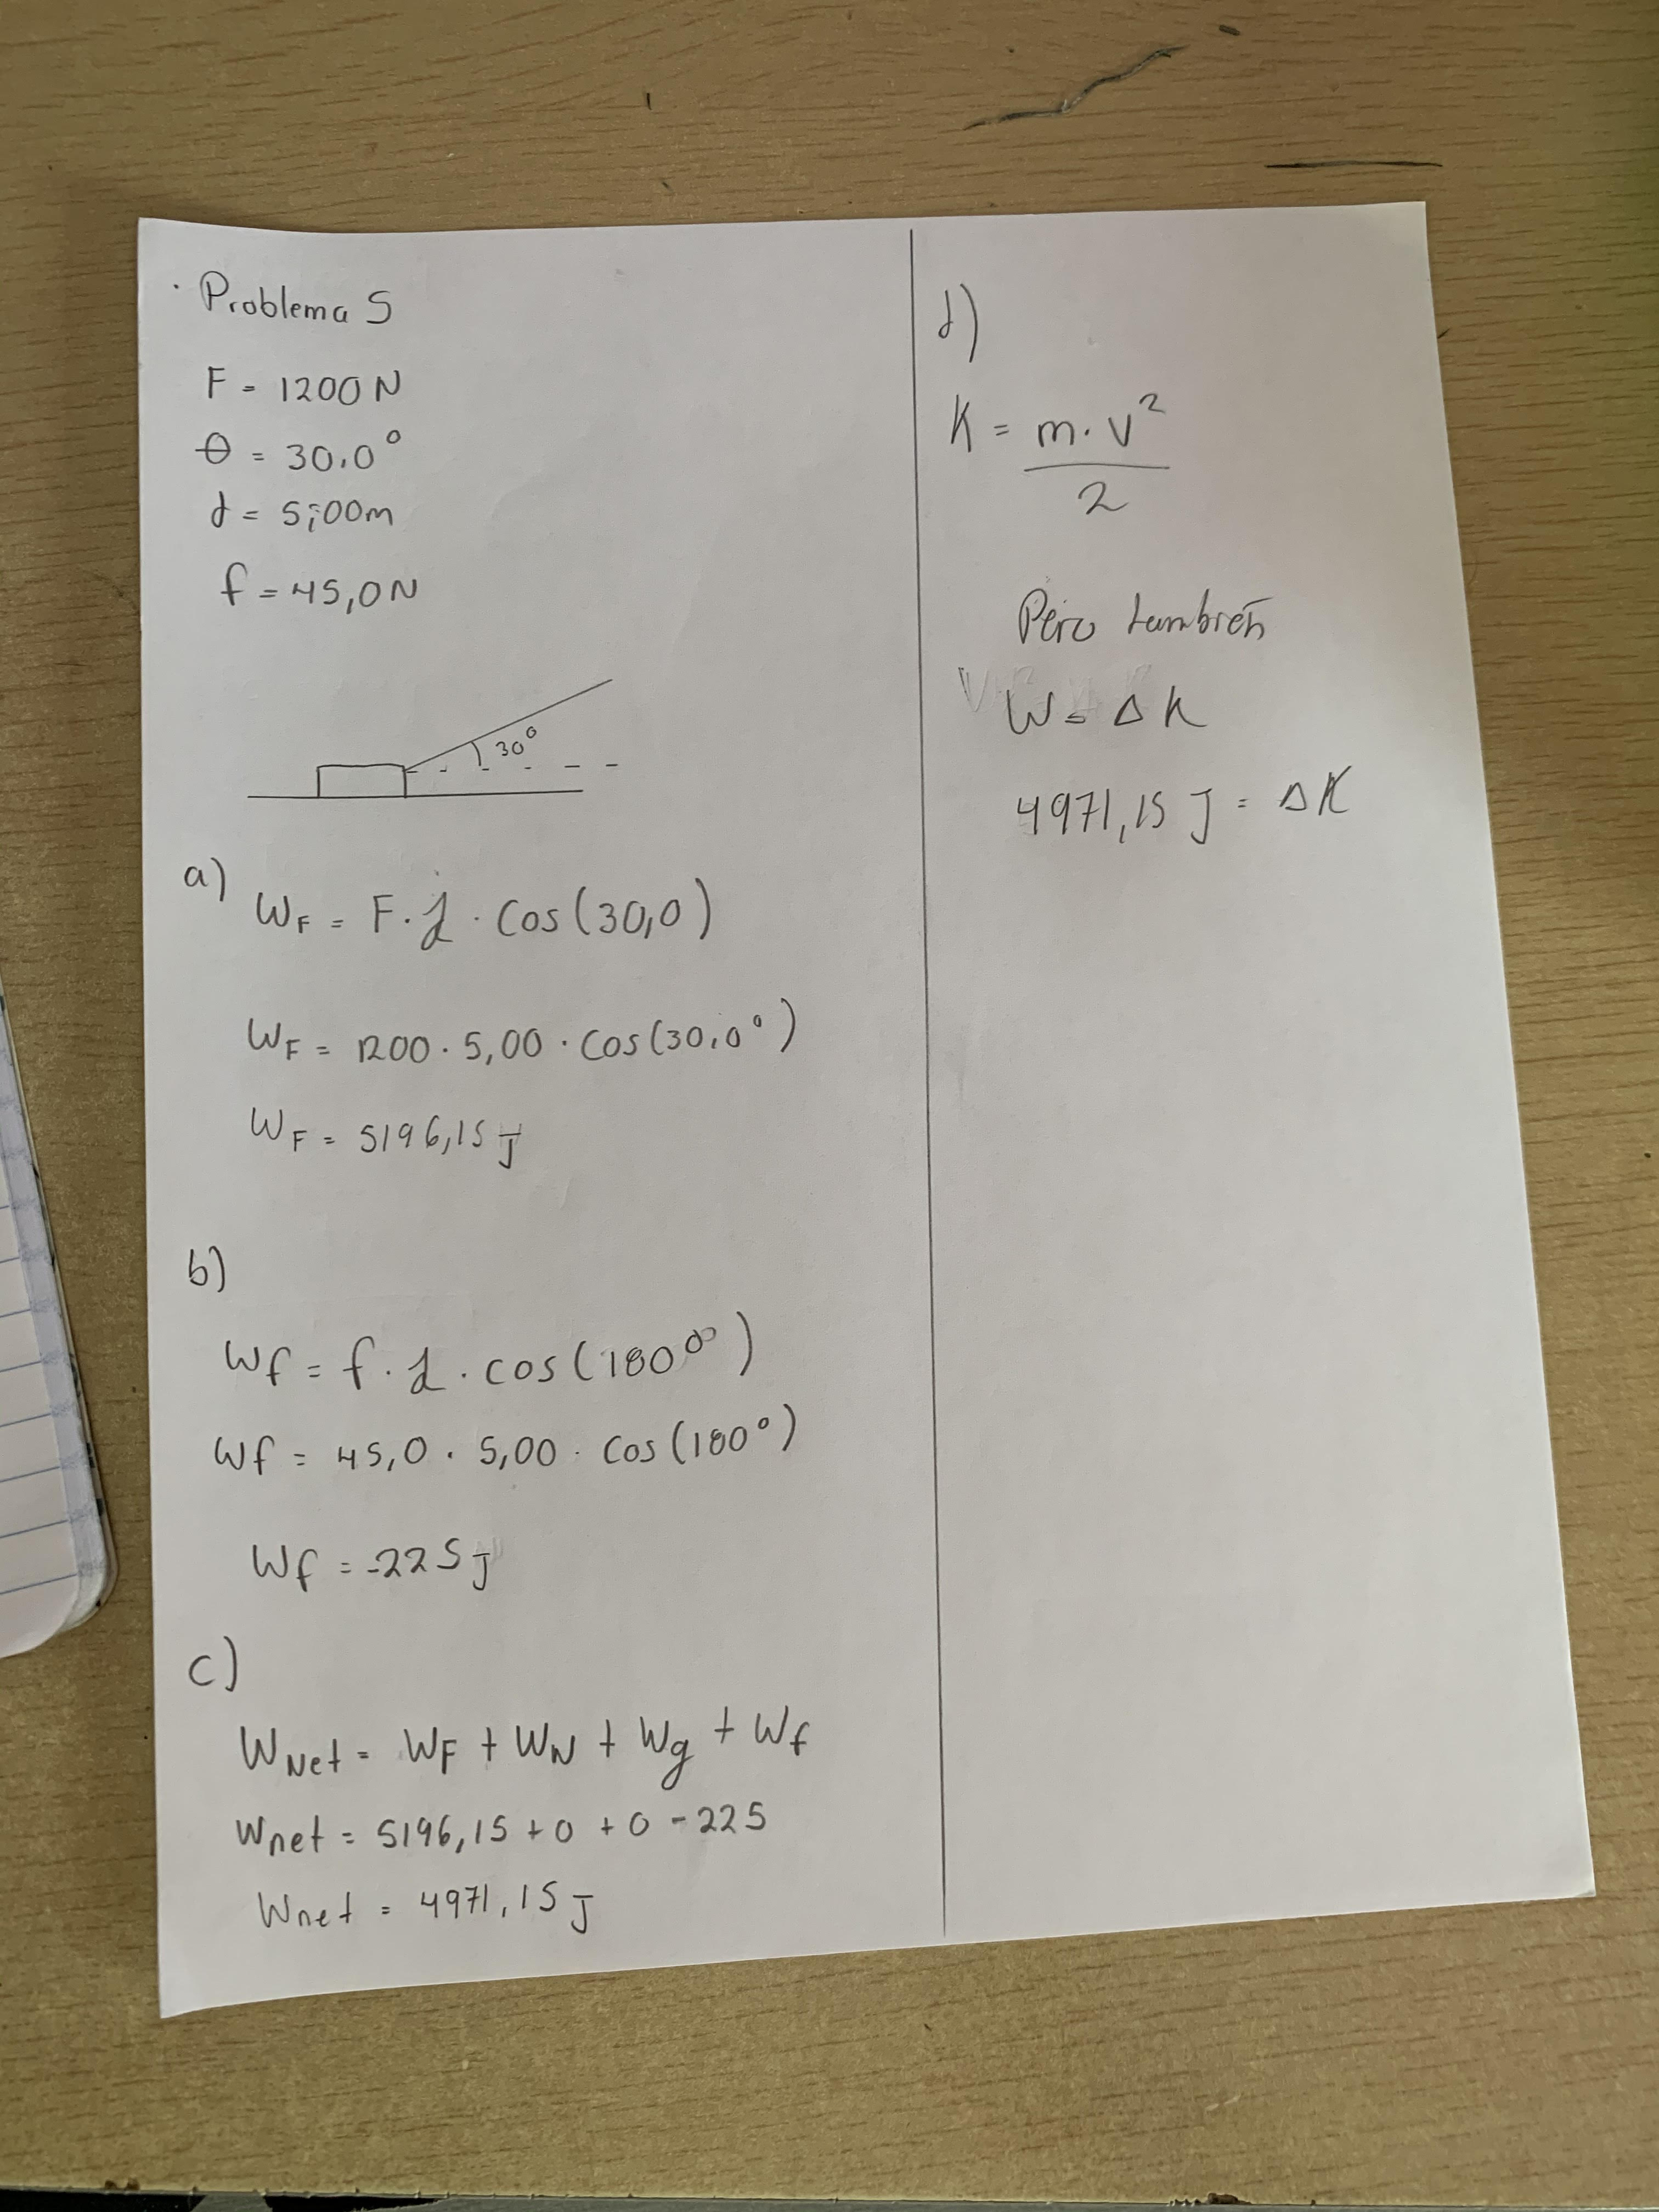 · Problema 5
F = 1200 N
θ = 30,0°
d = 5,00m
f = 45,0 N
30°
a)
WF = F · d · Cos(30,0)
WF = 1200 · 5,00 · Cos(30,0°)
WF = 5196,15 J
b)
Wf = f · d · cos(180°)
Wf = 45,0 · 5,00 · Cos(180°)
Wf = -225 J
c)
WNet = WF + WN + Wg + Wf
Wnet = 5196,15 + 0 + 0 - 225
Wnet = 4971,15 J
d)
K = m · v²
2
Pero también
W = ΔK
4971,15 J = ΔK